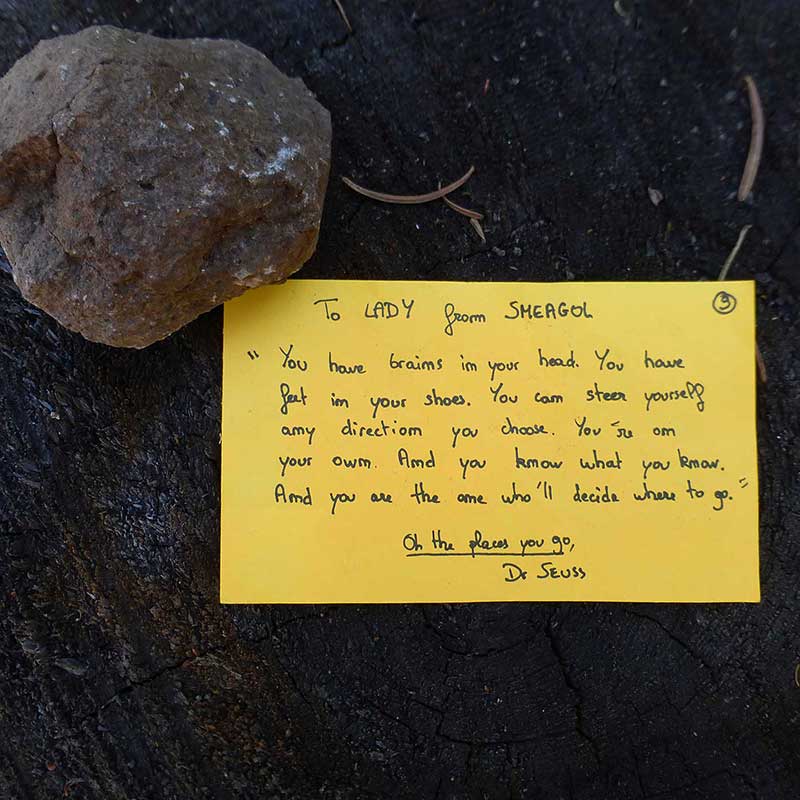 To LADY from SMEAGOL
③
" You have brains in your head. You have
feet in your shoes. You can steer yourself
any direction you choose. You're on
your own. And you know what you know.
And you are the one who'll decide where to go. "
Oh the places you go,
Dr SEUSS